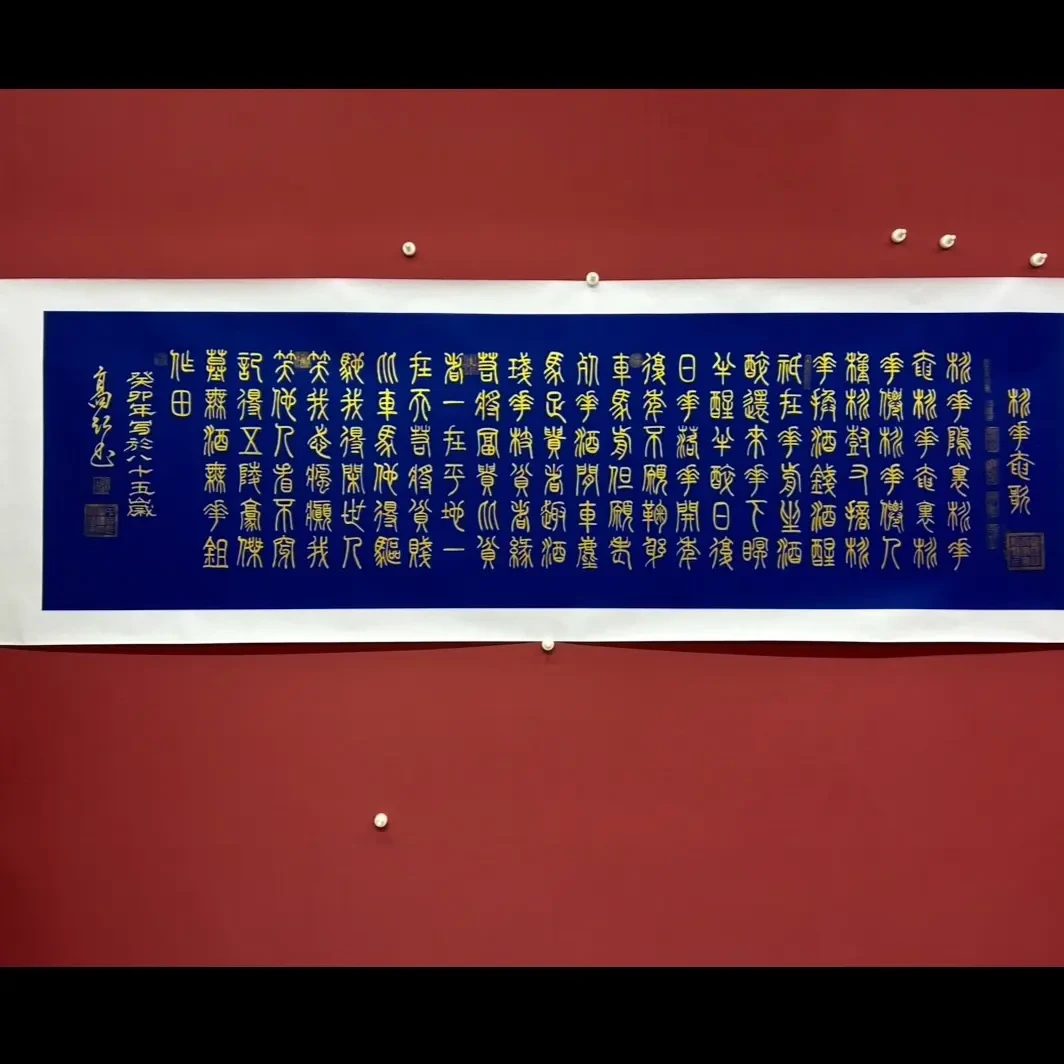 桃花庵歌
桃花隝裏桃花
庵桃花庵裏桃
花僊桃花僊人
種桃尌又摘桃
花換酒錢酒醒
祇在花前坐酒
醉還來花下眠
半醒半醉日復
日花落花開年
復年不願鞠躬
車馬前但願老
死花酒間車塵
馬足貴者趣酒
琖花枝貧者緣
若將富貴比貧
者一在平地一
在天若將貧賤
比車馬他得驅
馳我得閑世人
笑我忒瘋癲我
笑他人看不穿
記得五陵豪傑
墓無酒無花鉏
作田
癸卯年写於八十五歲
高